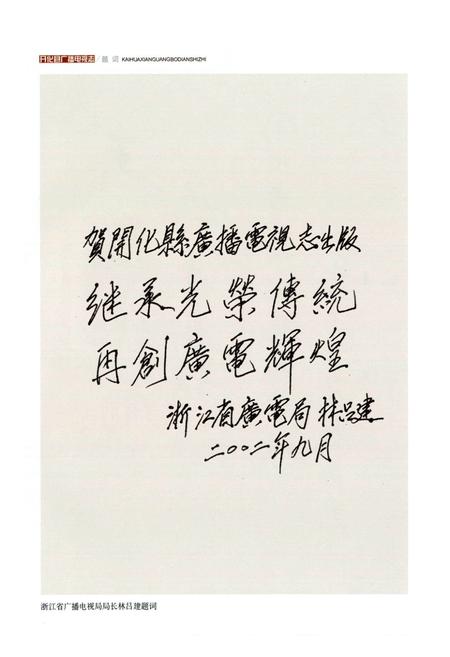 开化县广播电视志/题 词 KAIHUAXIANGUANGBODIANSHIZHI
賀開化縣廣播電視志出版
继承光榮傳統
再創廣電輝煌
浙江省廣電局 林呂建
二〇〇二年九月
浙江省广播电视局局长林吕建题词